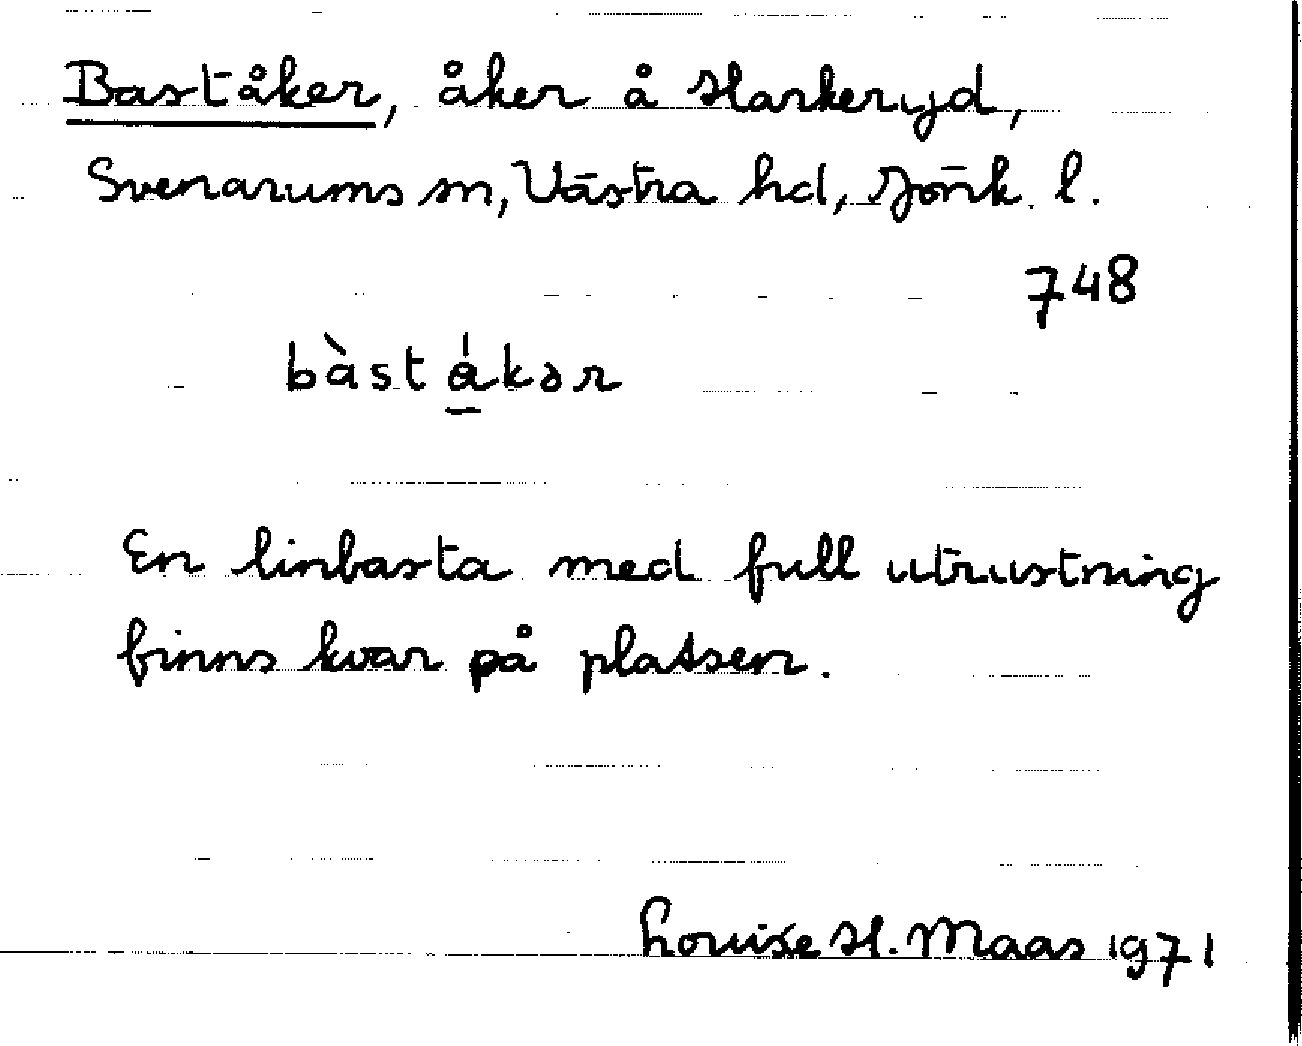 Baståker, åker å Harkeryd,
Svenarums sn, Västra hd, Jönk. l.
748
bàst á̲kər
En linbasta med full utrustning
finns kvar på platsen.
Louise H. Maas 1971